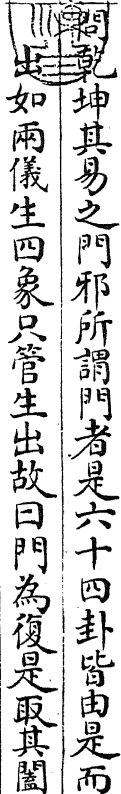 問乾坤其易之門邪所謂門者是六十四卦皆由是而
出如兩儀生四象只管生出故曰門為復是取其闔